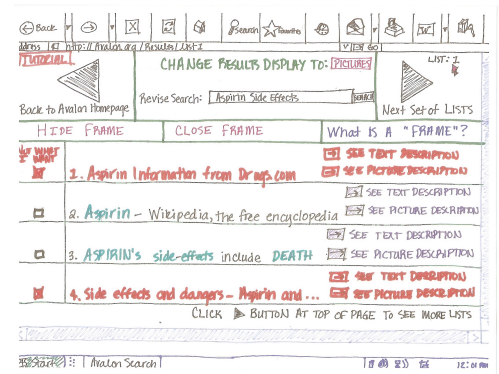 Back Search Favorites W
Address http://Avalon.org/Results/List1 GO
TUTORIAL CHANGE RESULTS DISPLAY TO: PICTURES LIST: 1
Back to Avalon Homepage Revise Search: Aspirin Side Effects SEARCH Next Set of LISTS
HIDE FRAME CLOSE FRAME What IS A "FRAME"?
WHAT
WANT
SEE TEXT DESCRIPTION
1. Aspirin Information from Drugs.com SEE PICTURE DESCRIPTION
SEE TEXT DESCRIPTION
2. Aspirin - Wikipedia, the free encyclopedia SEE PICTURE DESCRIPTION
SEE TEXT DESCRIPTION
3. ASPIRIN's side-effects include DEATH SEE PICTURE DESCRIPTION
SEE TEXT DESCRIPTION
4. Side effects and dangers - Aspirin and ... SEE PICTURE DESCRIPTION
CLICK ▶ BUTTON AT TOP OF PAGE TO SEE MORE LISTS
Start Avalon Search 12:01 AM